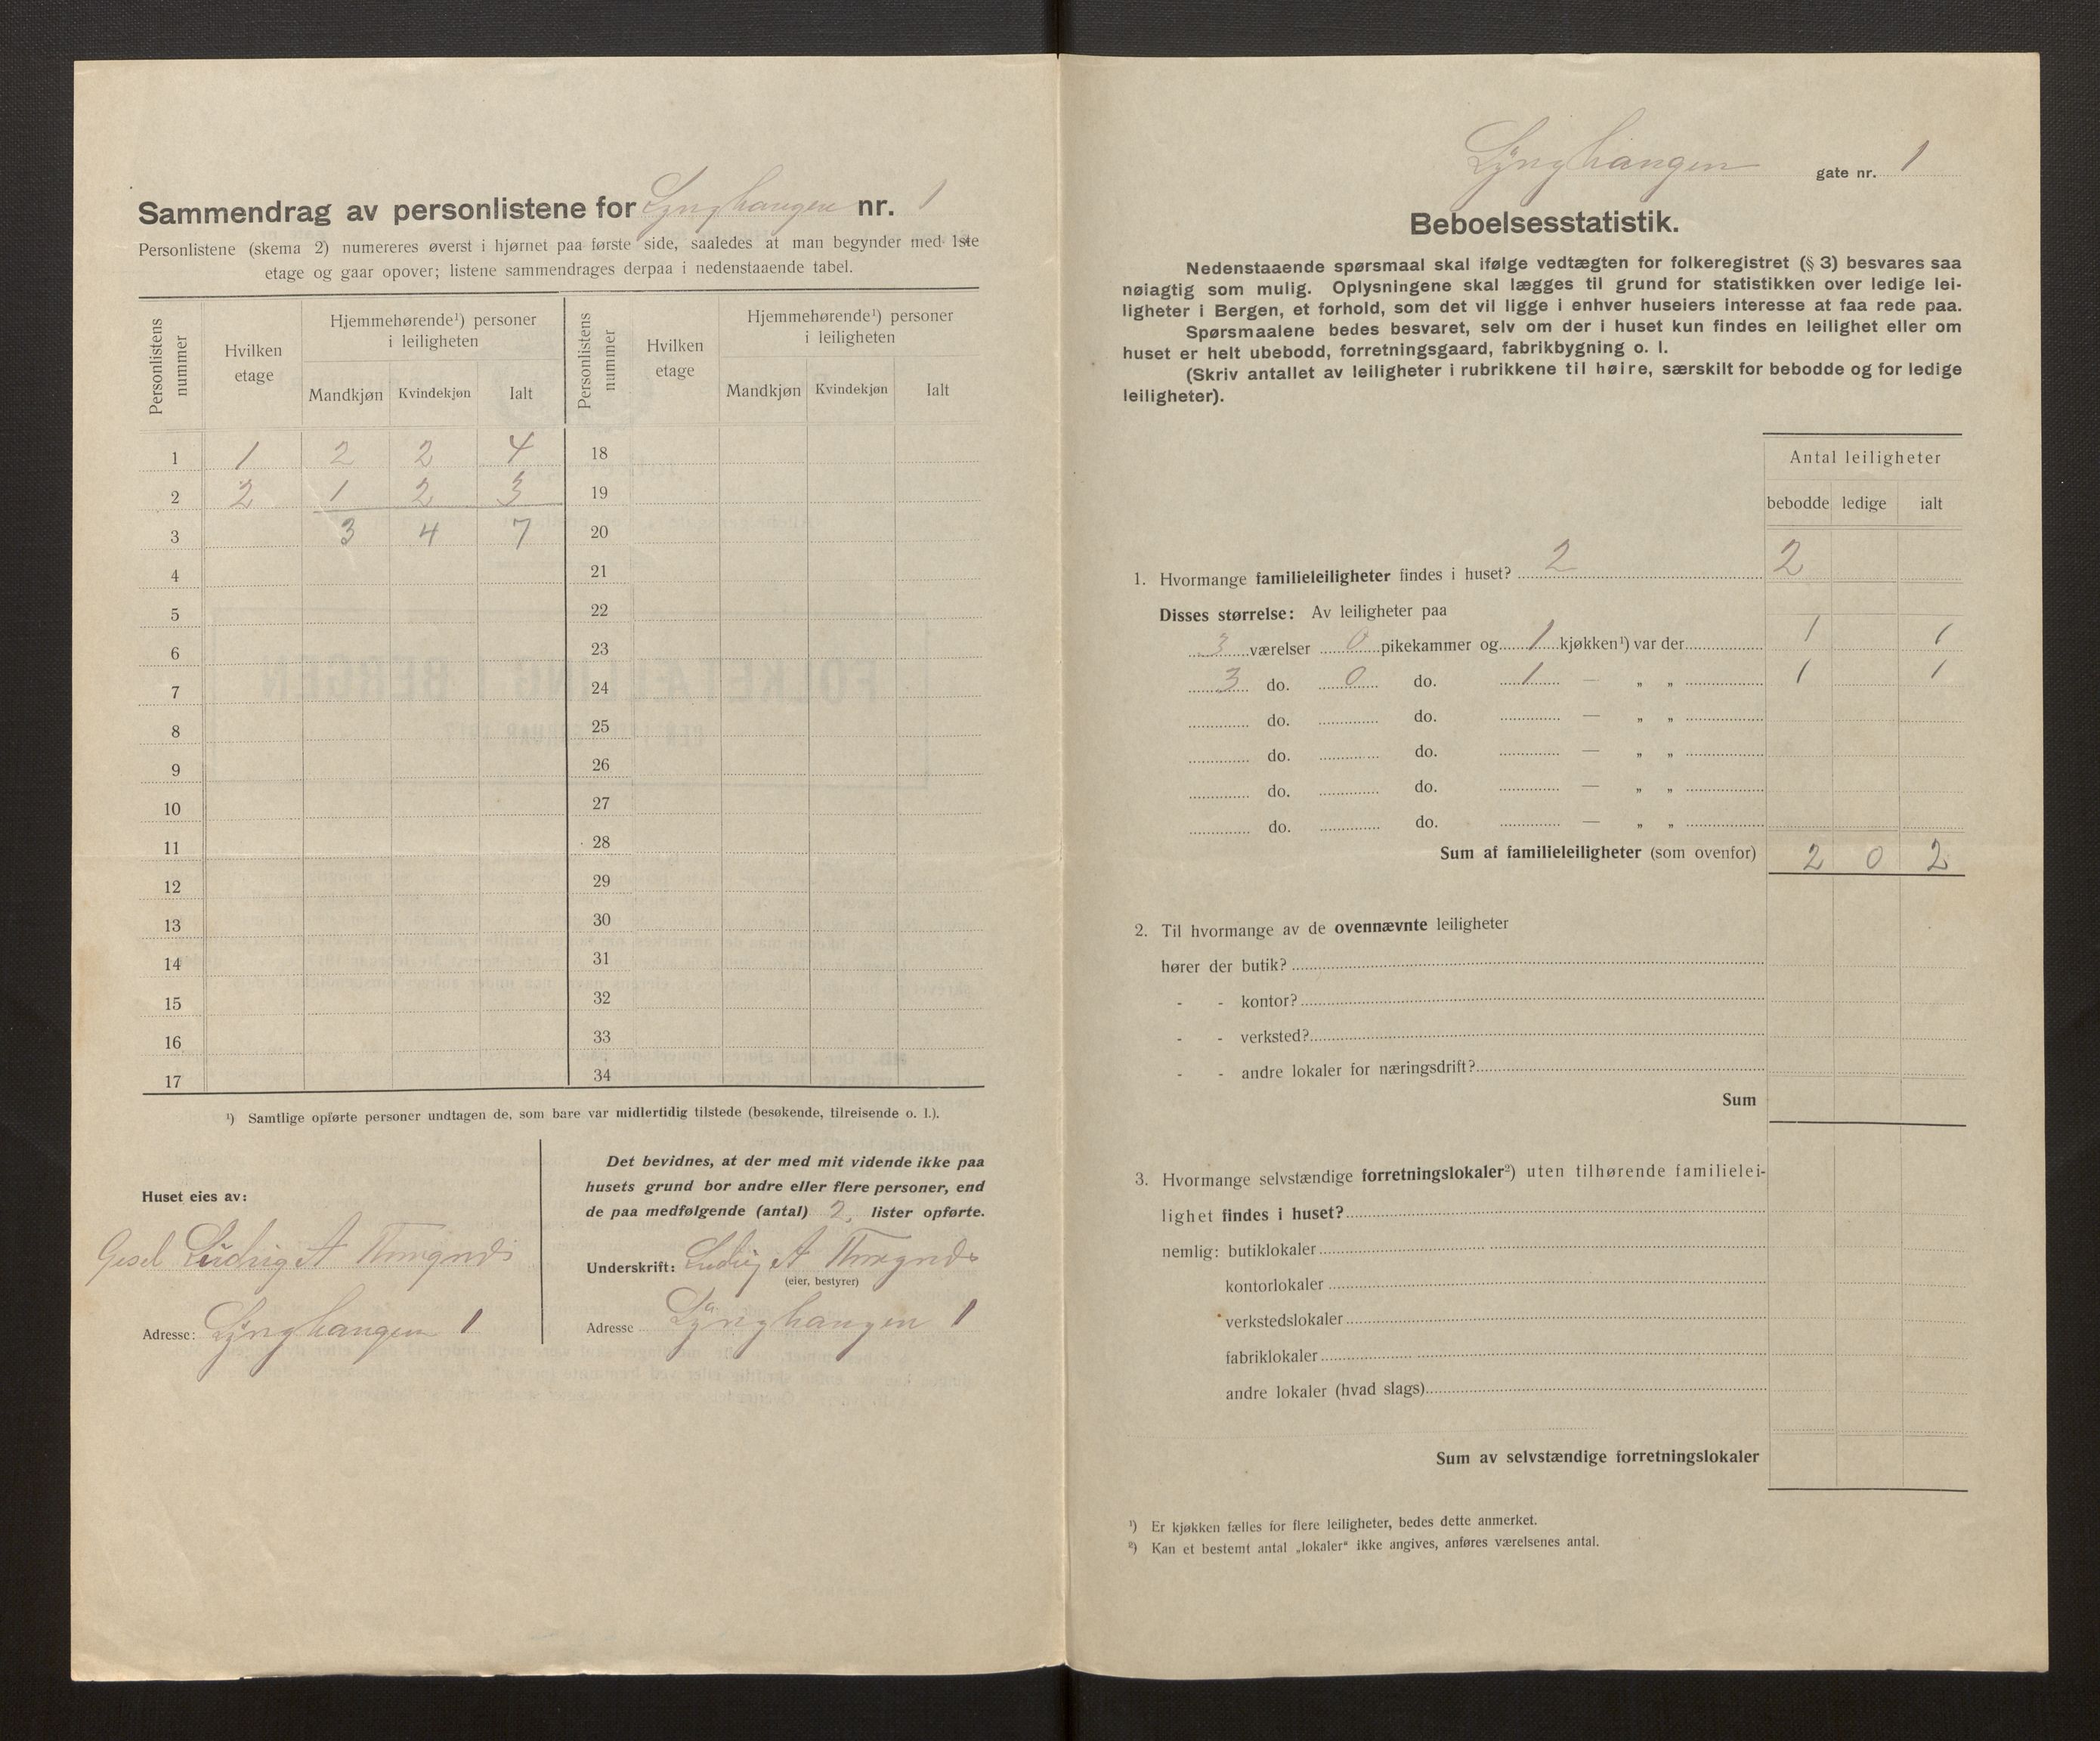 Sammendrag av personlistene for Lynghaugen nr. 1
Personlistene (skema 2) numereres øverst i hjørnet paa første side, saaledes at man begynder med 1ste
etage og gaar opover; listene sammendrages derpaa i nedenstaaende tabel.
Personlistens nummer | Hvilken etage | Hjemmehørende¹) personer i leiligheten | Personlistens nummer | Hvilken etage | Hjemmehørende¹) personer i leiligheten
Mandkjøn | Kvindekjøn | Ialt | Mandkjøn | Kvindekjøn | Ialt
1 1 2 2 4 18
2 2 1 2 3 19
3 3 4 7 20
4 21
5 22
6 23
7 24
8 25
9 26
10 27
11 28
12 29
13 30
14 31
15 32
16 33
17 34
¹) Samtlige opførte personer undtagen de, som bare var midlertidig tilstede (besøkende, tilreisende o. l.).
Huset eies av:
Ludvig A
Adresse: Lynghaugen 1
Det bevidnes, at der med mit vidende ikke paa
husets grund bor andre eller flere personer, end
de paa medfølgende (antal) 2, lister opførte.
Underskrift: Ludvig A
(eier, bestyrer)
Adresse Lynghaugen 1
Lynghaugen gate nr. 1
Beboelsesstatistik.
Nedenstaaende spørsmaal skal ifølge vedtægten for folkeregistret (§ 3) besvares saa
nøiagtig som mulig. Oplysningene skal lægges til grund for statistikken over ledige lei-
ligheter i Bergen, et forhold, som det vil ligge i enhver huseiers interesse at faa rede paa.
Spørsmaalene bedes besvaret, selv om der i huset kun findes en leilighet eller om
huset er helt ubebodd, forretningsgaard, fabrikbygning o. l.
(Skriv antallet av leiligheter i rubrikkene til høire, særskilt for bebodde og for ledige
leiligheter).
Antal leiligheter
bebodde | ledige | ialt
1. Hvormange familieleiligheter findes i huset? 2 2
Disses størrelse: Av leiligheter paa
3 værelser 0 pikekammer og 1 kjøkken¹) var der 1 1
3 do. 0 do. 1 — „ „ 1 1
do. do. — „ „
do. do. — „ „
do. do. — „ „
do. do. — „ „
Sum af familieleiligheter (som ovenfor) 2 0 2
2. Til hvormange av de ovennævnte leiligheter
hører der butik?
- - kontor?
- - verksted?
- - andre lokaler for næringsdrift?
Sum
3. Hvormange selvstændige forretningslokaler²) uten tilhørende familielei-
lighet findes i huset?
nemlig: butiklokaler
kontorlokaler
verkstedslokaler
fabriklokaler
andre lokaler (hvad slags)
Sum av selvstændige forretningslokaler
¹) Er kjøkken fælles for flere leiligheter, bedes dette anmerket.
²) Kan et bestemt antal „lokaler“ ikke angives, anføres værelsenes antal.